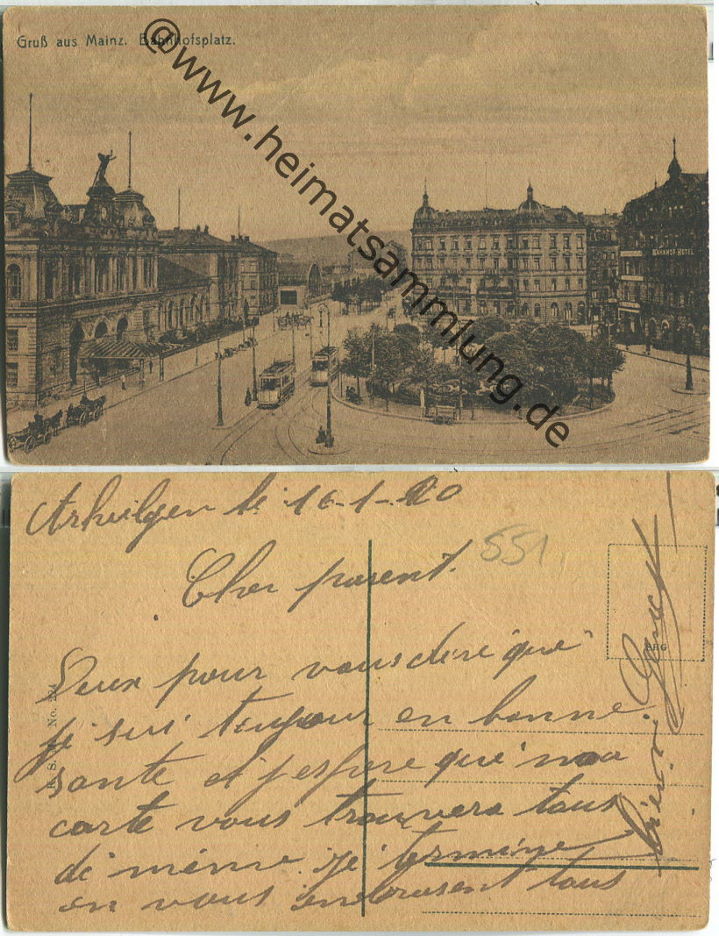 Gruß aus Mainz. Bahnhofsplatz.
@www.heimatsammlung.de
BAHNHOF-HOTEL
Arheilgen le 16-1-20
551
Cher parent.
Deux pour vous dire que
je suis toujour en bonne
sante et j'espere que ma
carte vous trouvera tous
de même. je termine
en vous embrasent tous
bien